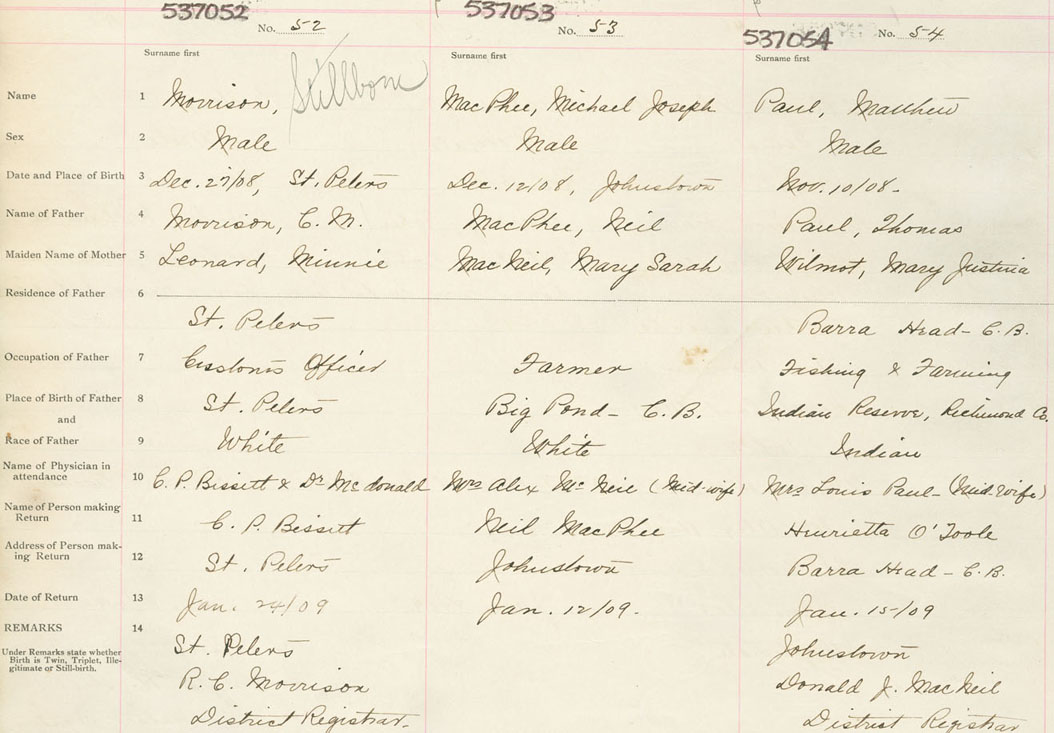 537052 537053 537054
No. 52 No. 53 No. 54
Surname first Surname first Surname first
Name 1 Morrison, Stillborn MacPhee, Michael Joseph Paul, Matthew
Sex 2 Male Male Male
Date and Place of Birth 3 Dec. 27/08, St. Peters Dec. 12/08, Johnstown Nov. 10/08-
Name of Father 4 Morrison, C. M. MacPhee, Neil Paul, Thomas
Maiden Name of Mother 5 Leonard, Minnie MacNeil, Mary Sarah Wilmot, Mary Justina
Residence of Father 6
St. Peters Barra Head- C. B.
Occupation of Father 7 Customs Officer Farmer Fishing & Farming
Place of Birth of Father 8 St. Peters Big Pond- C. B. Indian Reserve, Richmond Co.
and
Race of Father 9 White White Indian
Name of Physician in
attendance 10 C. P. Bissett & Dr McDonald Mrs Alex McNeil (Mid-wife) Mrs Louis Paul- (Mid-wife)
Name of Person making
Return 11 C. P. Bissett Neil MacPhee Henrietta O'Toole
Address of Person mak-
ing Return 12 St. Peters Johnstown Barra Head- C. B.
Date of Return 13 Jan. 24/09 Jan. 12/09. Jan. 15/09
REMARKS 14
Under Remarks state whether
Birth is Twin, Triplet, Ille-
gitimate or Still-birth.
St. Peters Johnstown
R. C. Morrison Donald J. MacNeil
District Registrar. District Registrar